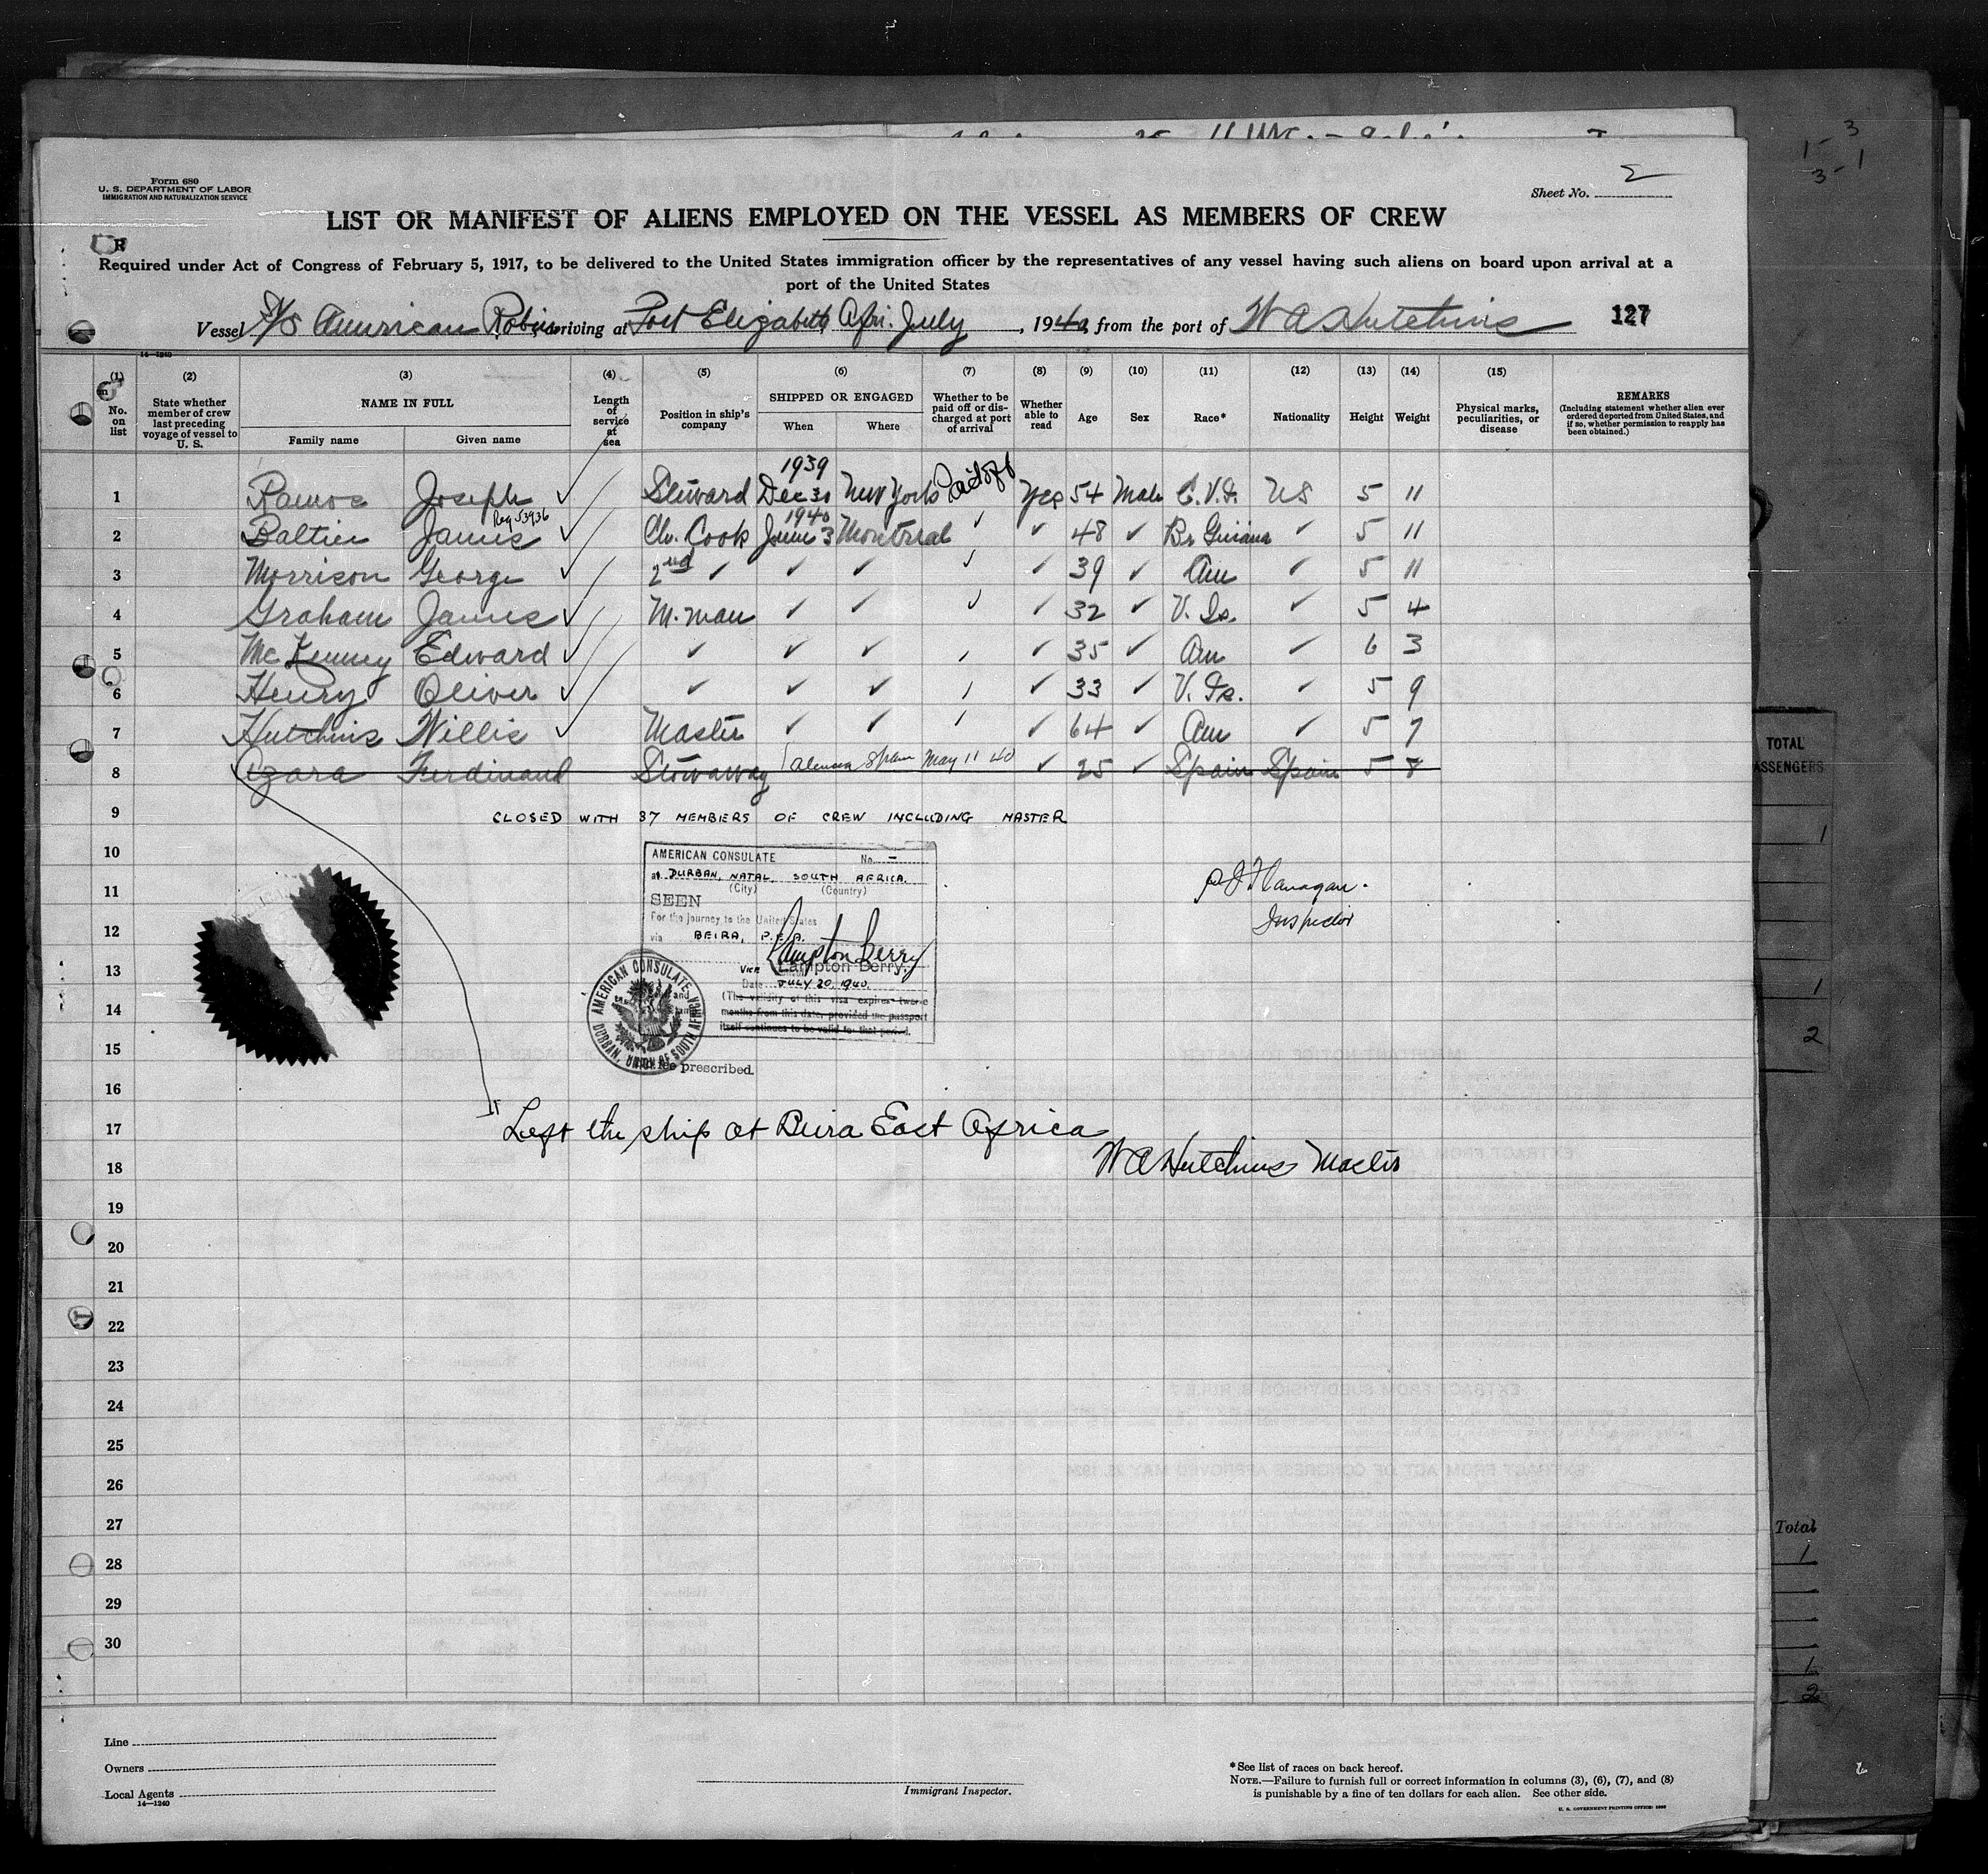 Form 680
U. S. DEPARTMENT OF LABOR
IMMIGRATION AND NATURALIZATION SERVICE
Sheet No. 2
LIST OR MANIFEST OF ALIENS EMPLOYED ON THE VESSEL AS MEMBERS OF CREW
Required under Act of Congress of February 5, 1917, to be delivered to the United States immigration officer by the representatives of any vessel having such aliens on board upon arrival at a
port of the United States
Vessel S/S American Robin, arriving at Port Elizabeth Afri. July, 1940, from the port of W A Hutchins 127
14-1240
(1) (2) (3) (4) (5) (6) (7) (8) (9) (10) (11) (12) (13) (14) (15)
No. on list
State whether member of crew last preceding voyage of vessel to U. S.
NAME IN FULL
Family name Given name
Length of service at sea
Position in ship's company
SHIPPED OR ENGAGED
When Where
Whether to be paid off or discharged at port of arrival
Whether able to read
Age Sex Race* Nationality Height Weight
Physical marks, peculiarities, or disease
REMARKS
(Including statement whether alien ever ordered deported from United States, and if so, whether permission to reapply has been obtained.)
1939
1 Ramos Joseph ✓ Steward Dec 30 New York Paid off Yes 54 Male C.V.I. US 5 11
Reg 53936 1940
2 Baltier James ✓ Ch. Cook June 3 Montreal ✓ ✓ 48 ✓ Br Guiana ✓ 5 11
3 Morrison George ✓ 2nd ✓ ✓ ✓ ✓ ✓ 39 ✓ Am ✓ 5 11
4 Graham James ✓ M. man ✓ ✓ ✓ ✓ 32 ✓ V. Is. ✓ 5 4
5 McKenney Edward ✓ ✓ ✓ ✓ ✓ ✓ 35 ✓ Am ✓ 6 3
6 Henry Oliver ✓ ✓ ✓ ✓ ✓ ✓ 33 ✓ V. Is. ✓ 5 9
7 Hutchins Willis ✓ Master ✓ ✓ ✓ ✓ 64 ✓ Am ✓ 5 7
8 Azara Ferdinand Stowaway Spain May 11 40 ✓ 25 ✓ Spain Spain 5 8
9 CLOSED WITH 37 MEMBERS OF CREW INCLUDING MASTER
10
11
12
13
14
15
16
AMERICAN CONSULATE No. —
at DURBAN, NATAL, SOUTH AFRICA.
(City) (Country)
SEEN
For the journey to the United States
via BEIRA, P.E.A.
Lampton Berry
VICE Lampton Berry.
Date JULY 20, 1940.
(The validity of this visa expires twelve
months from this date, provided the passport
itself continues to be valid for that period.
AMERICAN CONSULATE
DURBAN, UNION OF SOUTH AFRICA
fee prescribed.
Flanagan.
Inspector
17 Left the ship at Beira East Africa
18 W A Hutchins Master
19
20
21
22
23
24
25
26
27
28
29
30
Line
Owners
Local Agents
14—1240
Immigrant Inspector.
*See list of races on back hereof.
NOTE.—Failure to furnish full or correct information in columns (3), (6), (7), and (8)
is punishable by a fine of ten dollars for each alien. See other side.
U. S. GOVERNMENT PRINTING OFFICE
1- 3
3- 1
TOTAL
PASSENGERS
1
1
2
Total
1
1
2